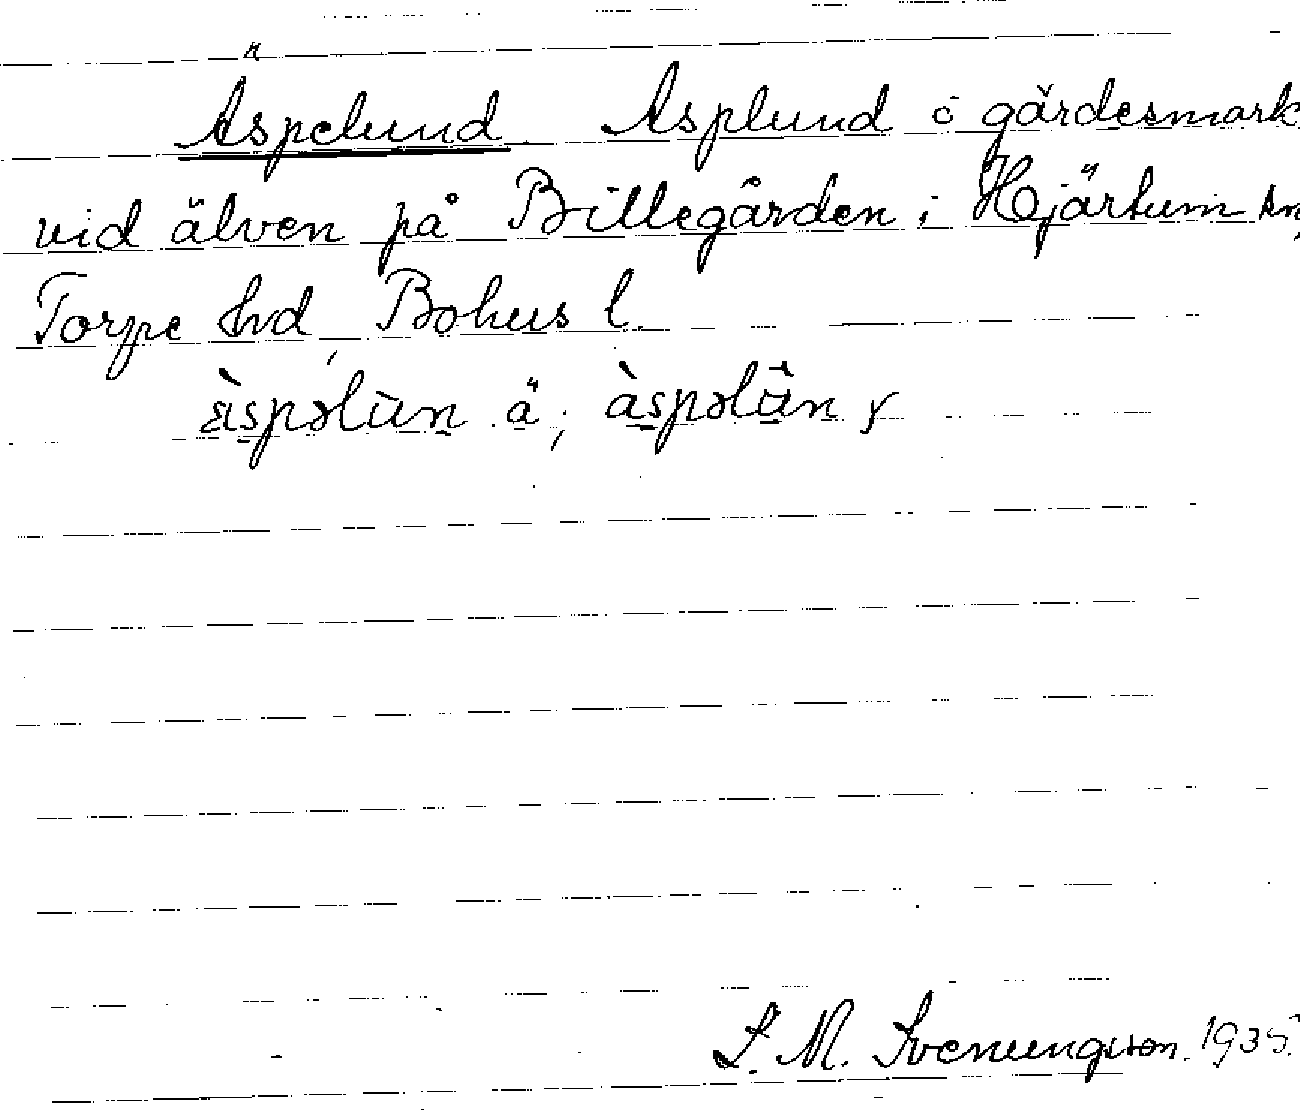 Äspelund Asplund ö gärdesmark
vid älven på Billegården i Hjärtum sn,
Torpe hd, Bohus l.
äspəlùn ä; àspəlûn y
S. M. Svenungsson. 1935.